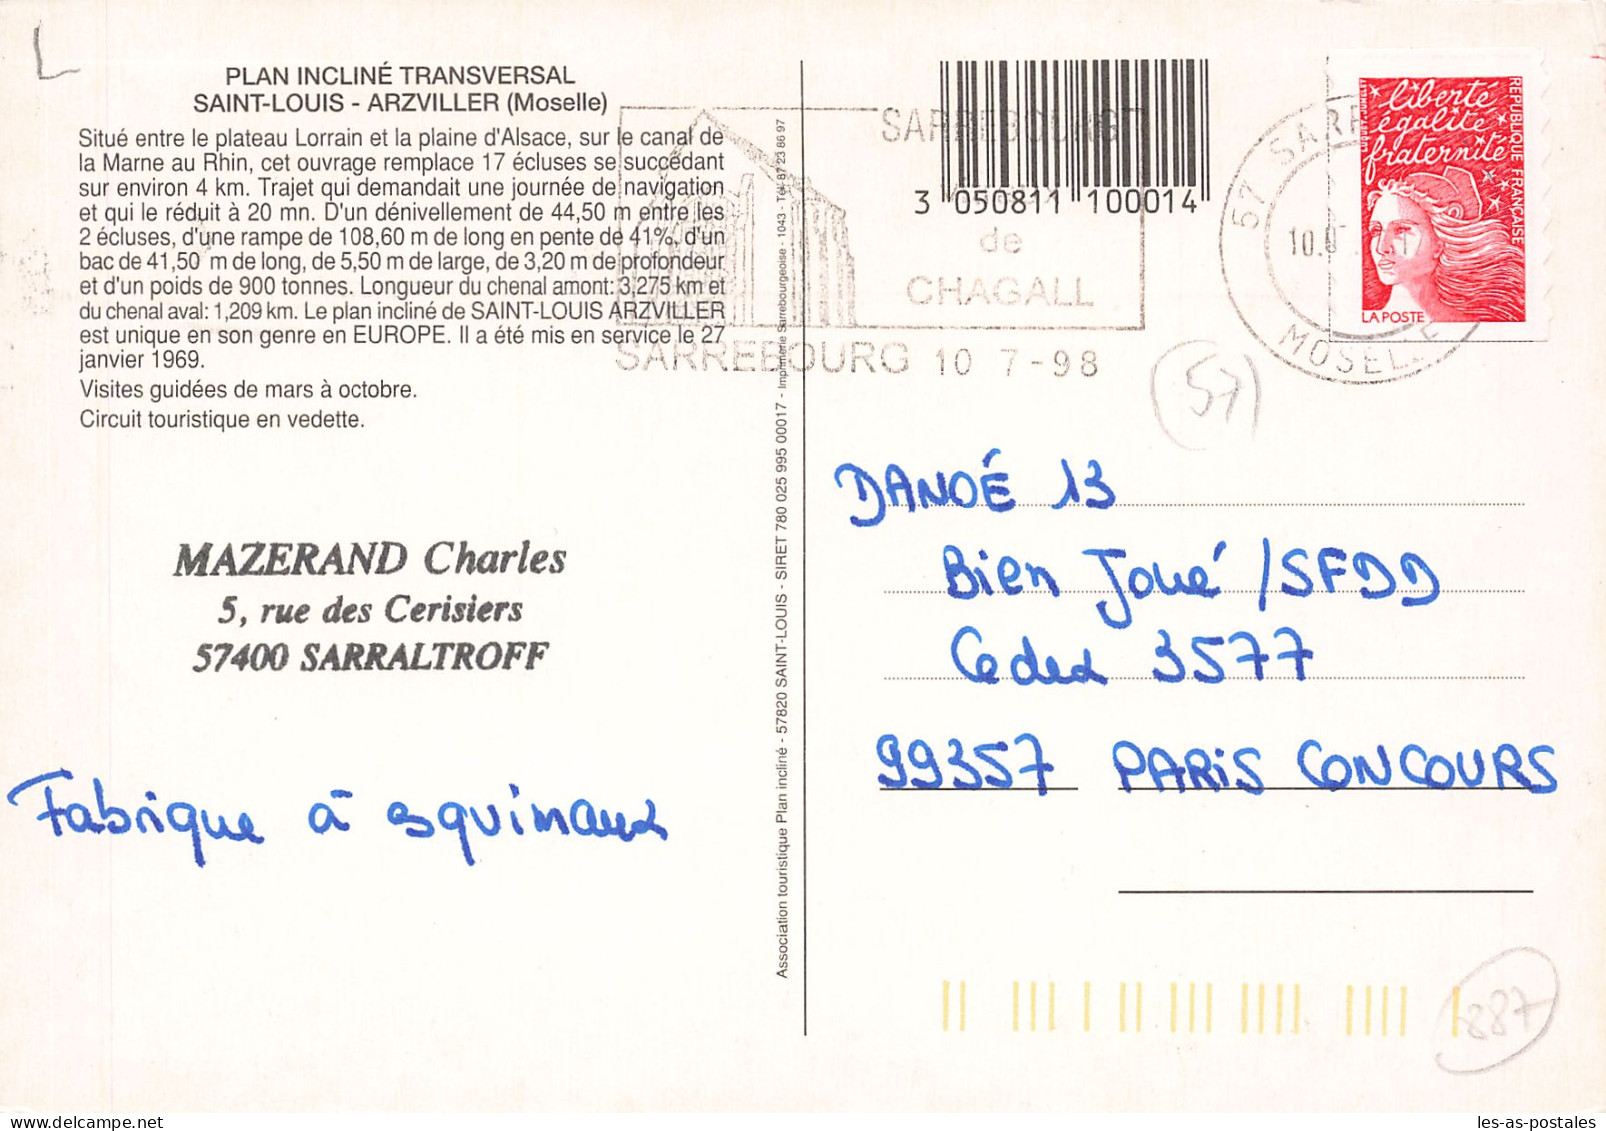 PLAN INCLINÉ TRANSVERSAL
SAINT-LOUIS - ARZVILLER (Moselle)
Situé entre le plateau Lorrain et la plaine d'Alsace, sur le canal de
la Marne au Rhin, cet ouvrage remplace 17 écluses se succédant
sur environ 4 km. Trajet qui demandait une journée de navigation
et qui le réduit à 20 mn. D'un dénivellement de 44,50 m entre les
2 écluses, d'une rampe de 108,60 m de long en pente de 41%, d'un
bac de 41,50 m de long, de 5,50 m de large, de 3,20 m de profondeur
et d'un poids de 900 tonnes. Longueur du chenal amont: 3,275 km et
du chenal aval: 1,209 km. Le plan incliné de SAINT-LOUIS ARZVILLER
est unique en son genre en EUROPE. Il a été mis en service le 27
janvier 1969.
Visites guidées de mars à octobre.
Circuit touristique en vedette.
MAZERAND Charles
5, rue des Cerisiers
57400 SARRALTROFF
Fabrique à esquimaux
Association touristique Plan incliné - 57820 SAINT-LOUIS - SIRET 780 025 995 00017 - Imprimerie Sarrebourgeoise - 1043 - Tél. 87 23 86 97
SARREBOURG
de
CHAGALL
SARREBOURG 10 7-98
3 050811 100014
57 SARR
10.
MOSELLE
liberté
égalité
fraternité
RÉPUBLIQUE FRANÇAISE
LA POSTE
(57)
DANOÉ 13
Bien Joué /SFDD
Cedex 3577
99357 PARIS CONCOURS
887
les-as-postales